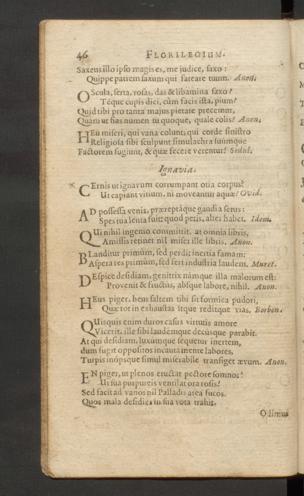 46 FLORILEGIUM.
Saxeus illo ipso magis es, me judice, saxo:
Quippe patrem saxum qui fateare tuum. Anon.
OScula, serta, rosas, das & libamina saxo?
Téque cupis dici, cùm facis ista, pium?
Quid tibi pro tanta majus pietate precemur,
Quàm ut fias numen tu quoque, quale colis? Anon.
HEu miseri, qui vana colunt; qui corde sinistro
Religiosa sibi sculpunt simulachra suúmque
Factorem fugiunt, & quæ fecere verentur! Sedul.
Ignavia.
CErnis ut ignavum corrumpant otia corpus?
Ut capiant vitium, ni moveantur aquæ? Ovid.
AD possessa venis, præreptáque gaudia serus:
Spes tua lenta fuit; quod petis, alter habet. Idem.
QUi nihil ingenio committit, at omnia libris,
Amissis retinet nil miser ille libris. Anon.
BLandum primùm, sed perdit inertia famam:
Aspera res primùm, sed fert industria laudem. Muret.
DEspice desidiam, genitrix námque illa malorum est:
Provenit & fructus, absque labore, nihil. Anon.
HEus piger, hem saltem tibi sit formica pudori,
Quæ tot in exhaustas itque reditque vias. Borbon.
QUisquis enim duros casus virtutis amore
Vicerit, ille sibi laudémque decúsque parabit.
At qui desidiam, luxúmque sequetur inertem,
dum fugit oppositos incauta mente labores,
Turpis inópsque simul miserabile transiget ævum. Anon.
EN piger, ut plenos eructat pectore somnos!
Ut sua purpureis ventilat ora rosis!
Sed facit ad vanos nil Palladis area fucos.
Quos mala desidies in sua vota trahit.